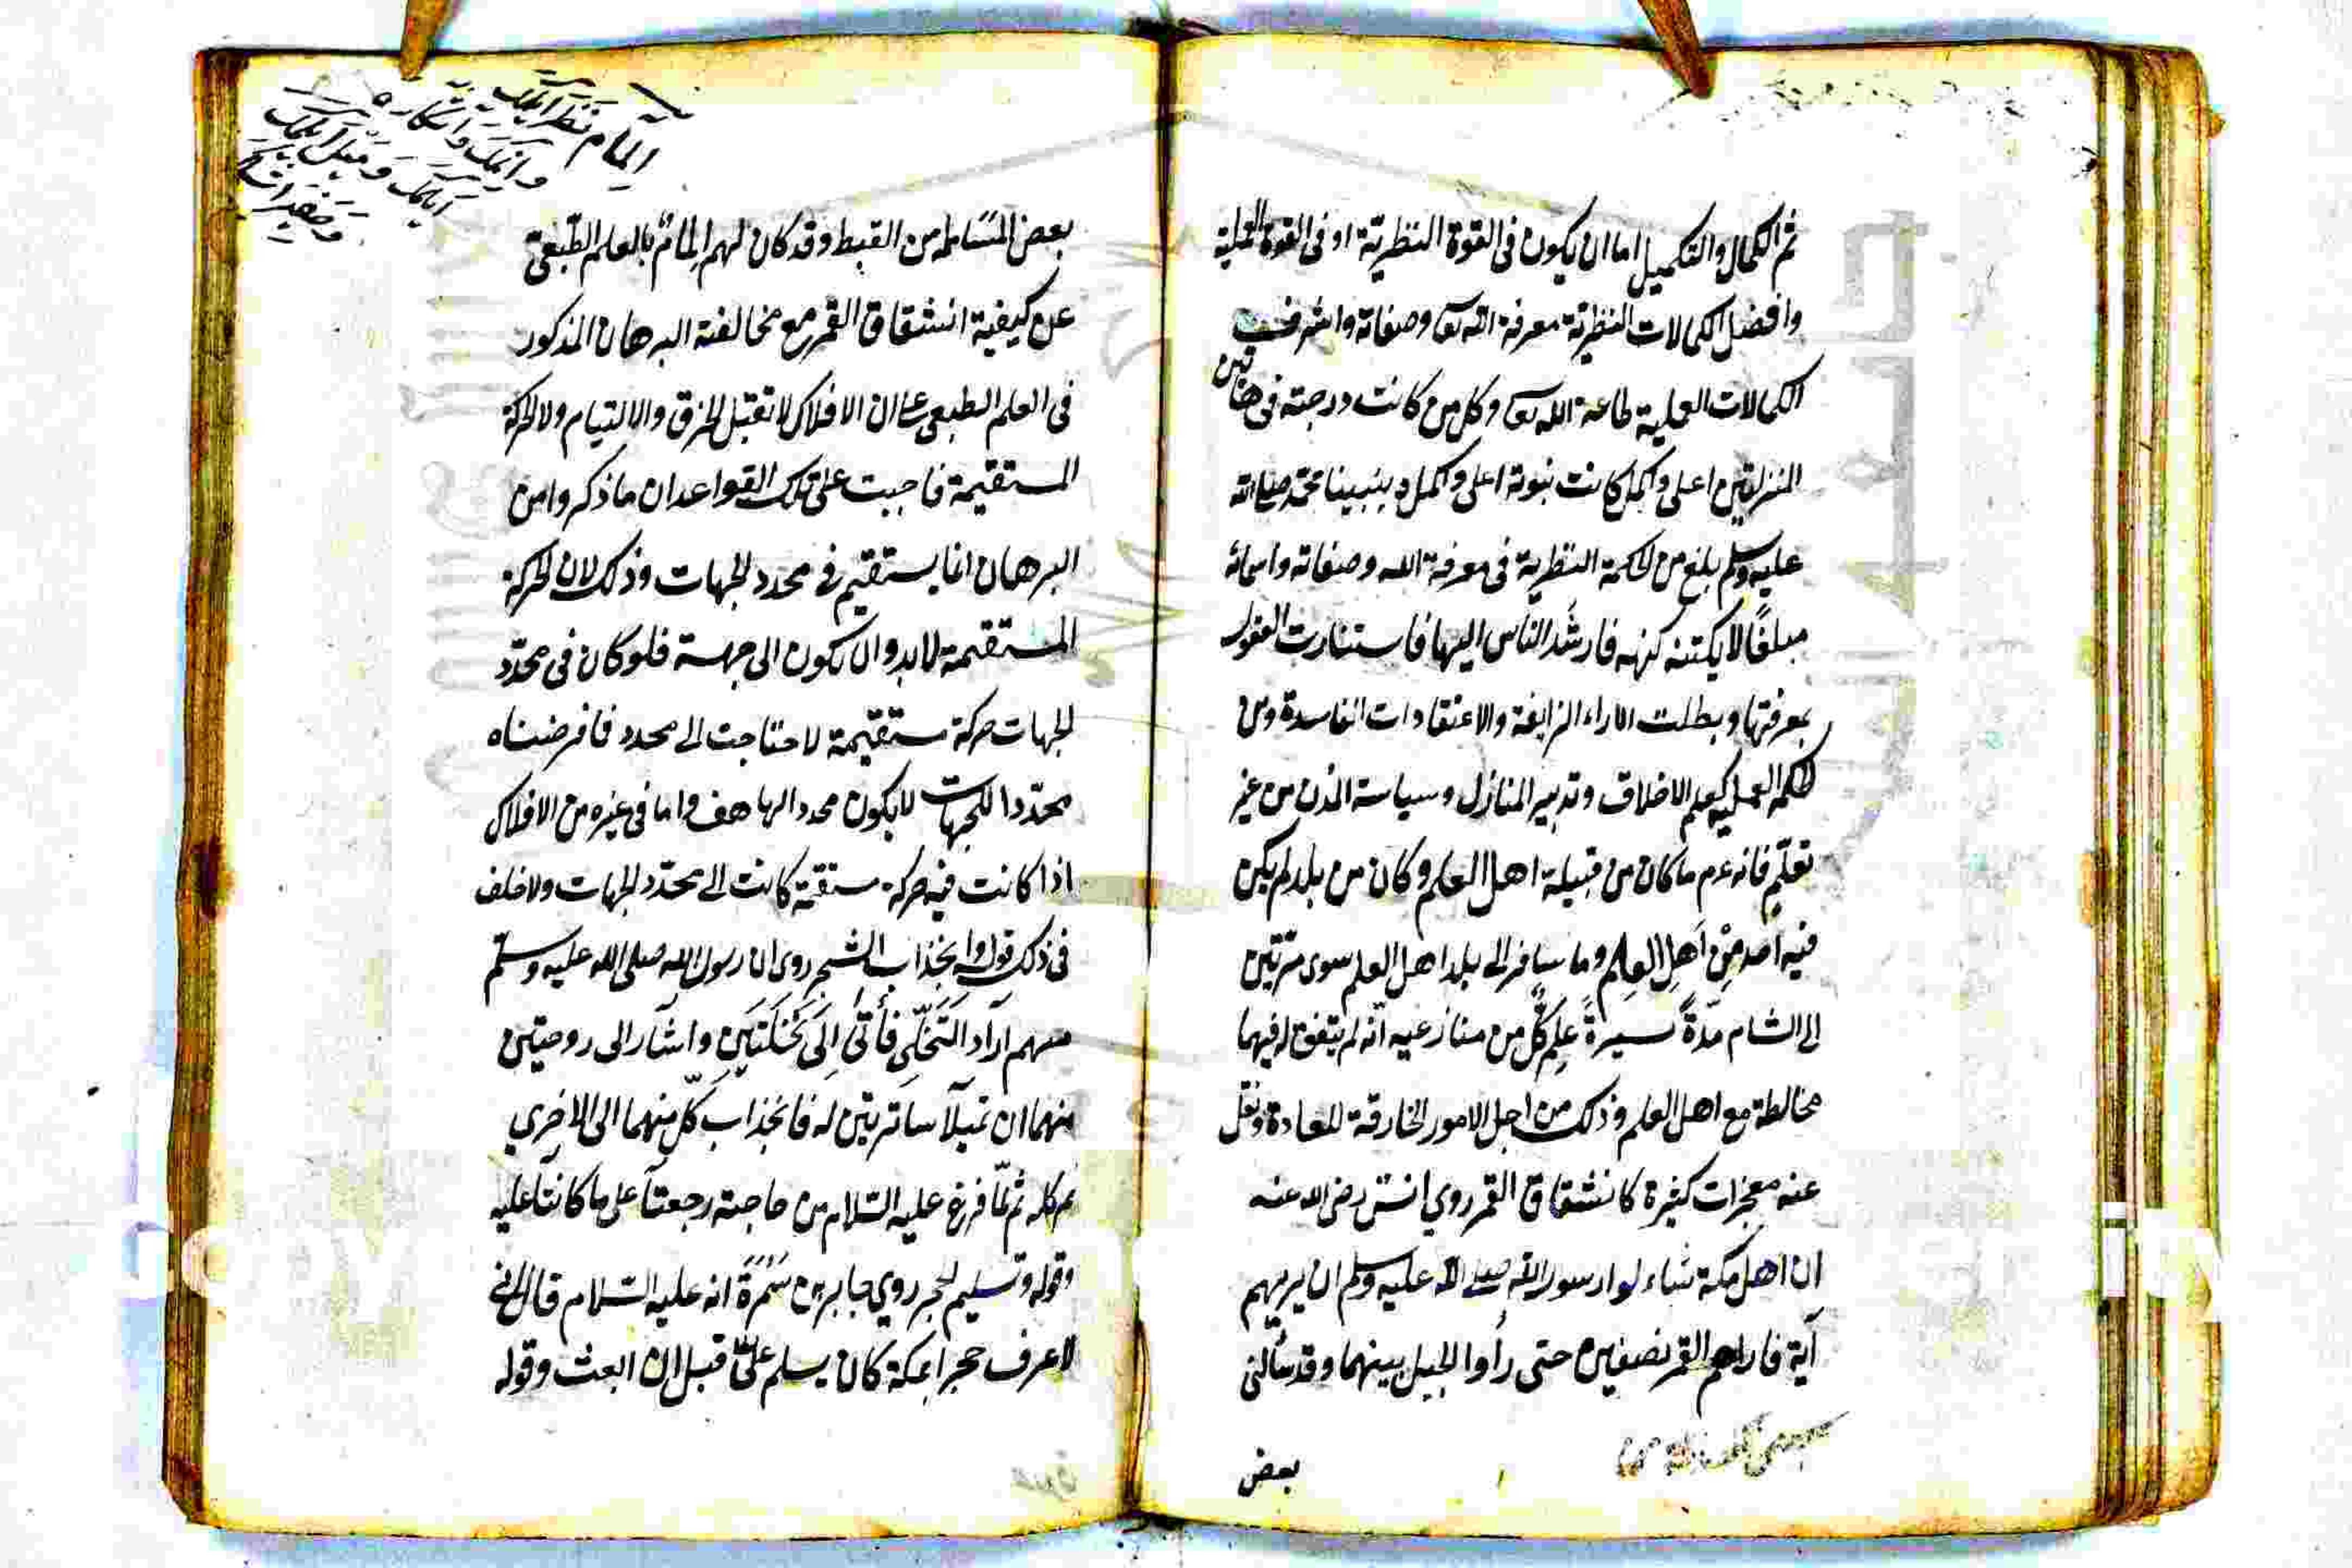 ثم الكمال والتكميل اما ان يكون فى القوة النظرية او فى القوة العملية
وافضل الكمالات النظرية معرفة الله تعا وصفاته واشرف
الكمالات العملية طاعة الله تعا وكل من كانت درجته فى هاتين
المنزلتين اعلى واكمل كانت نبوته اعلى واكمل ونبينا محمد صلى الله
عليه وسلم بلغ من الحكمة النظرية فى معرفة الله وصفاته واسمائه
مبلغًا لا يكتنه كنهه فارشد الناس اليها فاستنارت العقول
بمعرفتها وبطلت الاراء الزايغة والاعتقادات الفاسدة ومن
الحكمة العملية كعلم الاخلاق وتدبير المنازل وسياسة المدن من غير
تعلّم فانه عم ما كان من قبيلة اهل العلم وكان من بلد لم يكن
فيه احد من اهل العلم وما سافر الى بلد اهل العلم سوى مرتين
الى الشام مدّةً يسيرةً علم كلّ من منازعيه انّه لم يتفق له فيهما
مخالطة مع اهل العلم وذلك من اجل الامور الخارقة للعادة ونقل
عنه معجزات كثيرة كانشقاق القمر روي انس رضى الله عنه
ان اهل مكة سٔالوا رسول الله صلى الله عليه وسلم ان يريهم
آية فاراهم القمر نصفين حتى رأوا الجبل بينهما وقد سألنى
بعض
بعض من القبط وقد كان لهم إلمامٌ بالعلم الطّبعى
عن كيفية انشقاق القمر مع مخالفته البرهان المذكور
فى العلم الطبعى على ان الافلاك لا تقبل الخرق والالتيام ولا الحركة
المستقيمة فاجبت على تلك القواعد ان ما ذكروا من
البرهان انما يستقيم فى محدد الجهات وذلك لان الحركة
المستقيمة لا بد وان يكون الى جهة فلو كان فى محدّد
الجهات حركة مستقيمة لاحتاجت الى محدد فما فرضناه
محدّدا للجهات لا يكون محددا لها هف واما فى غيره من الافلاك
اذا كانت فيه حركة مستقيمة كانت الى محدّد الجهات ولا خلف
فى ذلك قوله وانجذاب الشجر روى ان رسول الله صلى الله عليه وسلّم
اراد التَخَلّى فأتى الى نَخلَتَين واشار الى
منهما ان تميلا ساترتين له فانجذاب كلّ منهما الى الاخرى
ثم لمّا فرغ عليه السّلام من حاجته رجعتا على ما كانتا عليه
وقوله وتسليم الحجر روي جابر بن سَمُرَةً انه عليه السّلام قال انى
لاعرف حجرا بمكة كان يسلم علىّ قبل ان ابعث وقوله